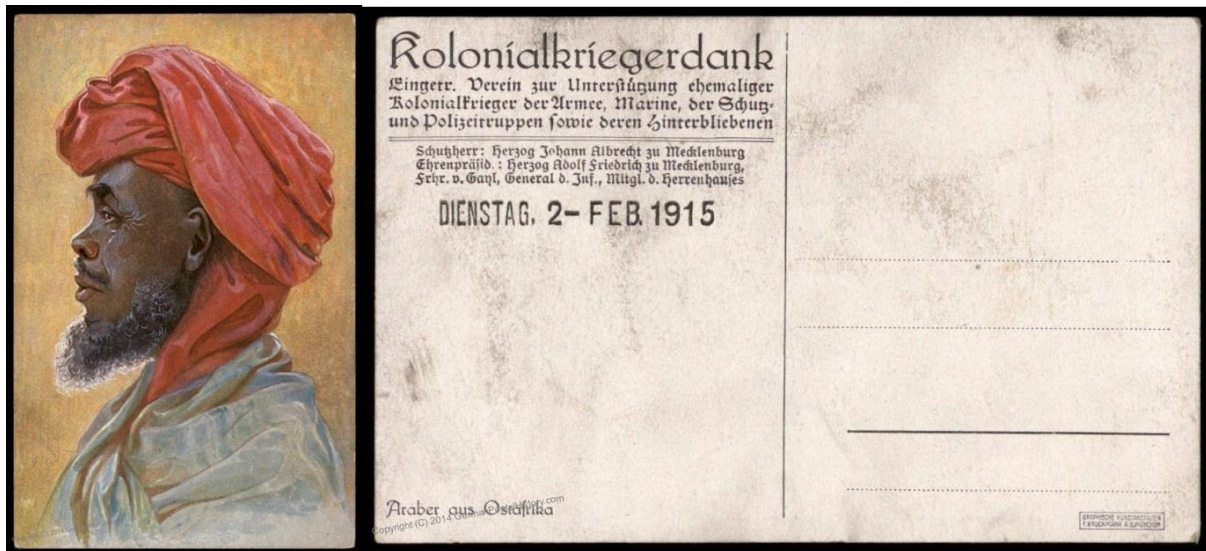 Kolonialkriegerdank
Eingetr. Verein zur Unterstützung ehemaliger
Kolonialkrieger der Armee, Marine, der Schutz-
und Polizeitruppen sowie deren Hinterbliebenen
Schutzherr: Herzog Johann Albrecht zu Mecklenburg
Ehrenpräsid.: Herzog Adolf Friedrich zu Mecklenburg,
Frhr. v. Gayl, General d. Inf., Mitgl. d. Herrenhauses
DIENSTAG, 2- FEB. 1915
Araber aus Ostafrika
Copyright (C) 2014 GermanPostalHistory.com
GRAPHISCHE KUNSTANSTALTEN
F. BRUCKMANN A.G. MÜNCHEN